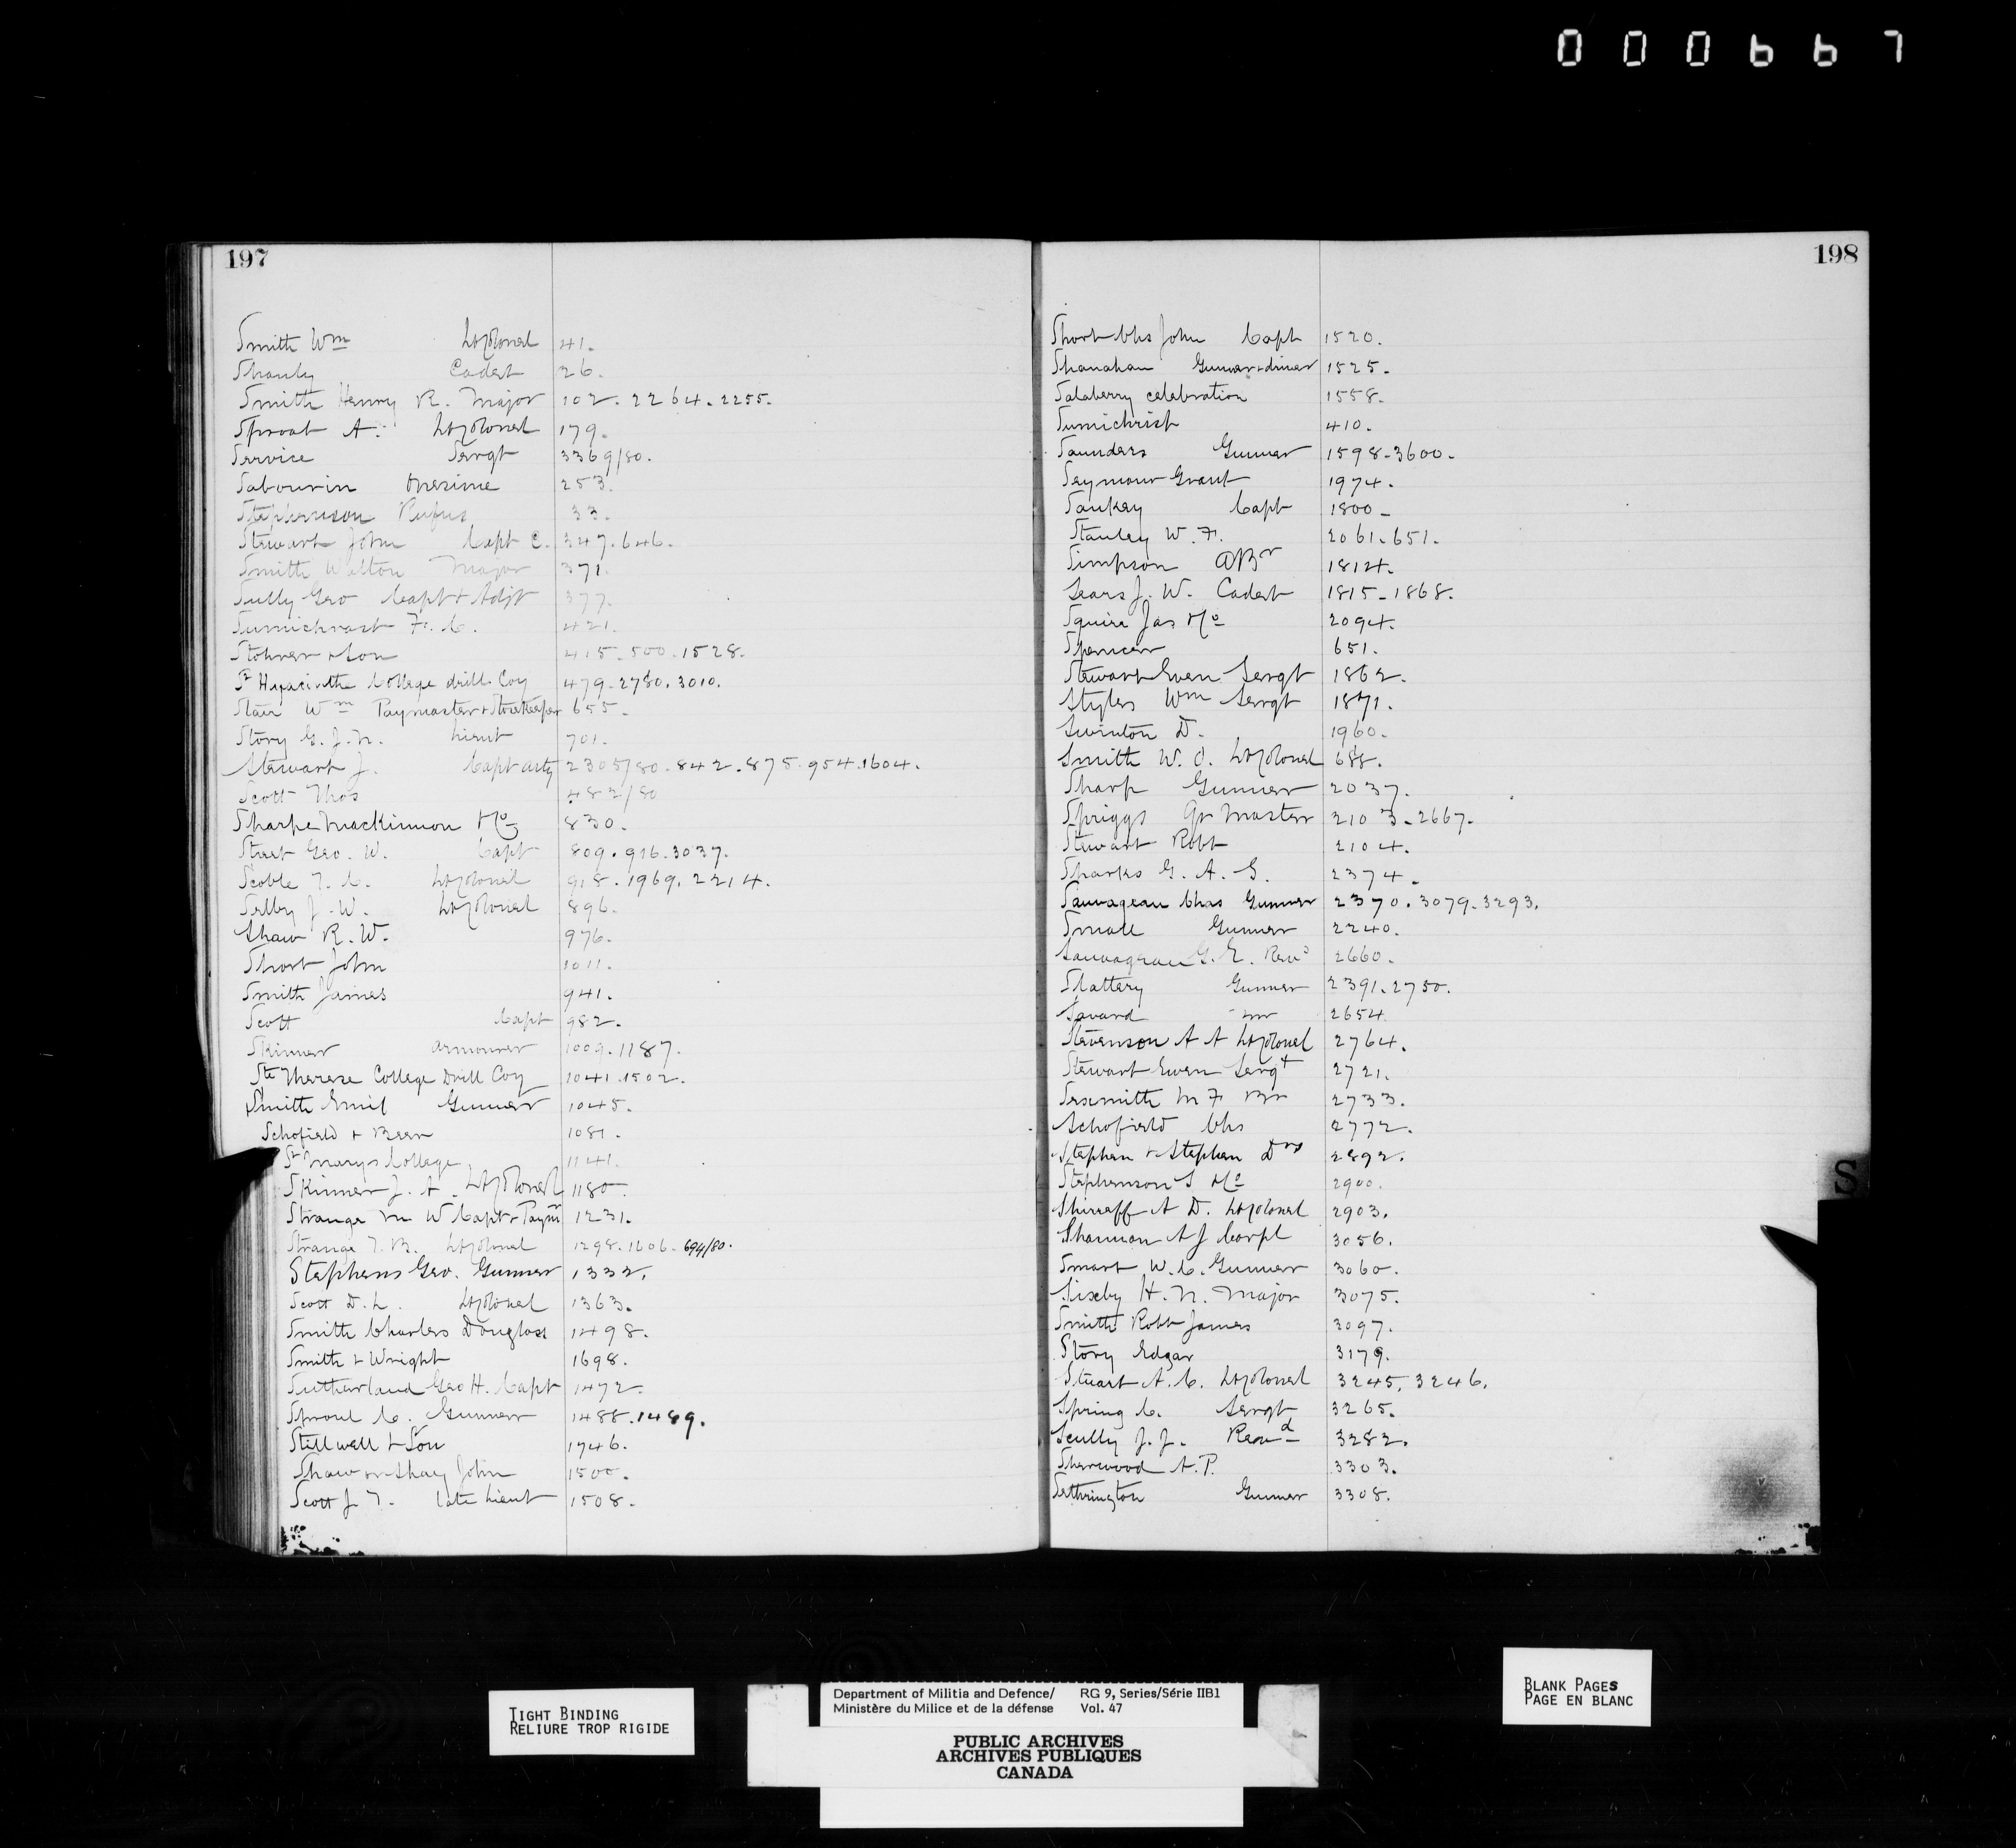 000667
197
Smith Wm Lt Colonel 41.
Shanly Cadet 26.
Smith Henry R. Major 102. 2264. 2255.
Sproat A. Lt Colonel 179.
Service Sergt 3369/80.
Sabourin Onesime 253.
Stephenson Rufus 33.
Stewart John Capt C. 347. 646.
Smith Walton Major 371.
Sully Geo Capt & Adjt 377.
Sumichrast F. C. 421.
Stohrer & Son 415. 500. 1528.
St Hyacinthe College drill Coy 479-2780. 3010.
Stair Wm Paymaster & Storekeeper 655.
Story G. J. N. Lieut 701.
Stewart J. Capt arty 2305/80. 842. 875. 954. 1604.
Scott Thos 482/80
Sharpe Mackinnon & Co 830.
Street Geo. W. Capt 809. 916. 3037.
Scoble T. C. Lt Colonel 918. 1969. 2214.
Selby J. W. Lt Colonel 896.
Shaw R. W. 976.
Short John 1011.
Smith James 941.
Scott Capt 982.
Skinner armourer 1009. 1187.
Ste Therese College Drill Coy 1041. 1502.
Smith Emil Gunner 1045.
Schofield & Beer 1081.
St Marys College 1141.
Skinner J. A. Lt Colonel 1180.
Strange M W Capt & Paymr 1231.
Strange T. B. Lt Colonel 1298. 1606. 694/80.
Stephens Geo. Gunner 1332.
Scott D. L. Lt Colonel 1363.
Smith Charles Douglass 1498.
Smith & Wright 1698.
Sutherland Geo H. Capt 1472.
Sproul C. Gunner 1488. 1489.
Stillwell & Son 1746.
Shaw or Shay John 1500.
Scott J. T. late Lieut 1508.
198
Short Chs John Capt 1520.
Shanahan Gunner & driver 1525.
Salaberry celebration 1558.
Sumichrist 410.
Saunders Gunner 1598-3600.
Seymour Grant 1974.
Sankey Capt 1800-
Stanley W. F. 2061. 651.
Simpson Br 1814.
Sears J. W. Cadet 1815-1868.
Squire Jas & Co 2094.
Spencer 651.
Stewart Ewen Sergt 1862.
Styles Wm Sergt 1871.
Swinton D. 1960.
Smith W. O. Lt Colonel 688.
Sharp Gunner 2037.
Spriggs Qr Master 2103-2667.
Stewart Robt 2104.
Sharks G. A. S. 2374.
Sauvageau Chas Gunner 2370. 3079. 3293.
Smale Gunner 2240.
Sauvageau G. E. Revd 2660.
Slattery Gunner 2391. 2750.
Savard Mr 2654
Stevenson A A Lt Colonel 2764.
Stewart Ewen Sergt 2721.
Sexsmith M F Br 2733.
Schofield Chs 2772.
Stephen & Stephen Drs 2892.
Stephenson S & Co 2900.
Shirreff A D. Lt Colonel 2903.
Shannon A J Corpl 3056.
Smart W. C. Gunner 3060.
Sixby H. N. Major 3075.
Smith Robt James 3097.
Story Edgar 3179.
Stuart A. C. Lt Colonel 3245. 3246.
Spring C. Sergt 3265.
Scully J. J. Revd 3282.
Sherwood A. P. 3303.
Setherington Gunner 3308.
S
TIGHT BINDING
RELIURE TROP RIGIDE
Department of Militia and Defence/ RG 9, Series/Série IIB1
Ministère du Milice et de la défense Vol. 47
PUBLIC ARCHIVES
ARCHIVES PUBLIQUES
CANADA
BLANK PAGES
PAGE EN BLANC